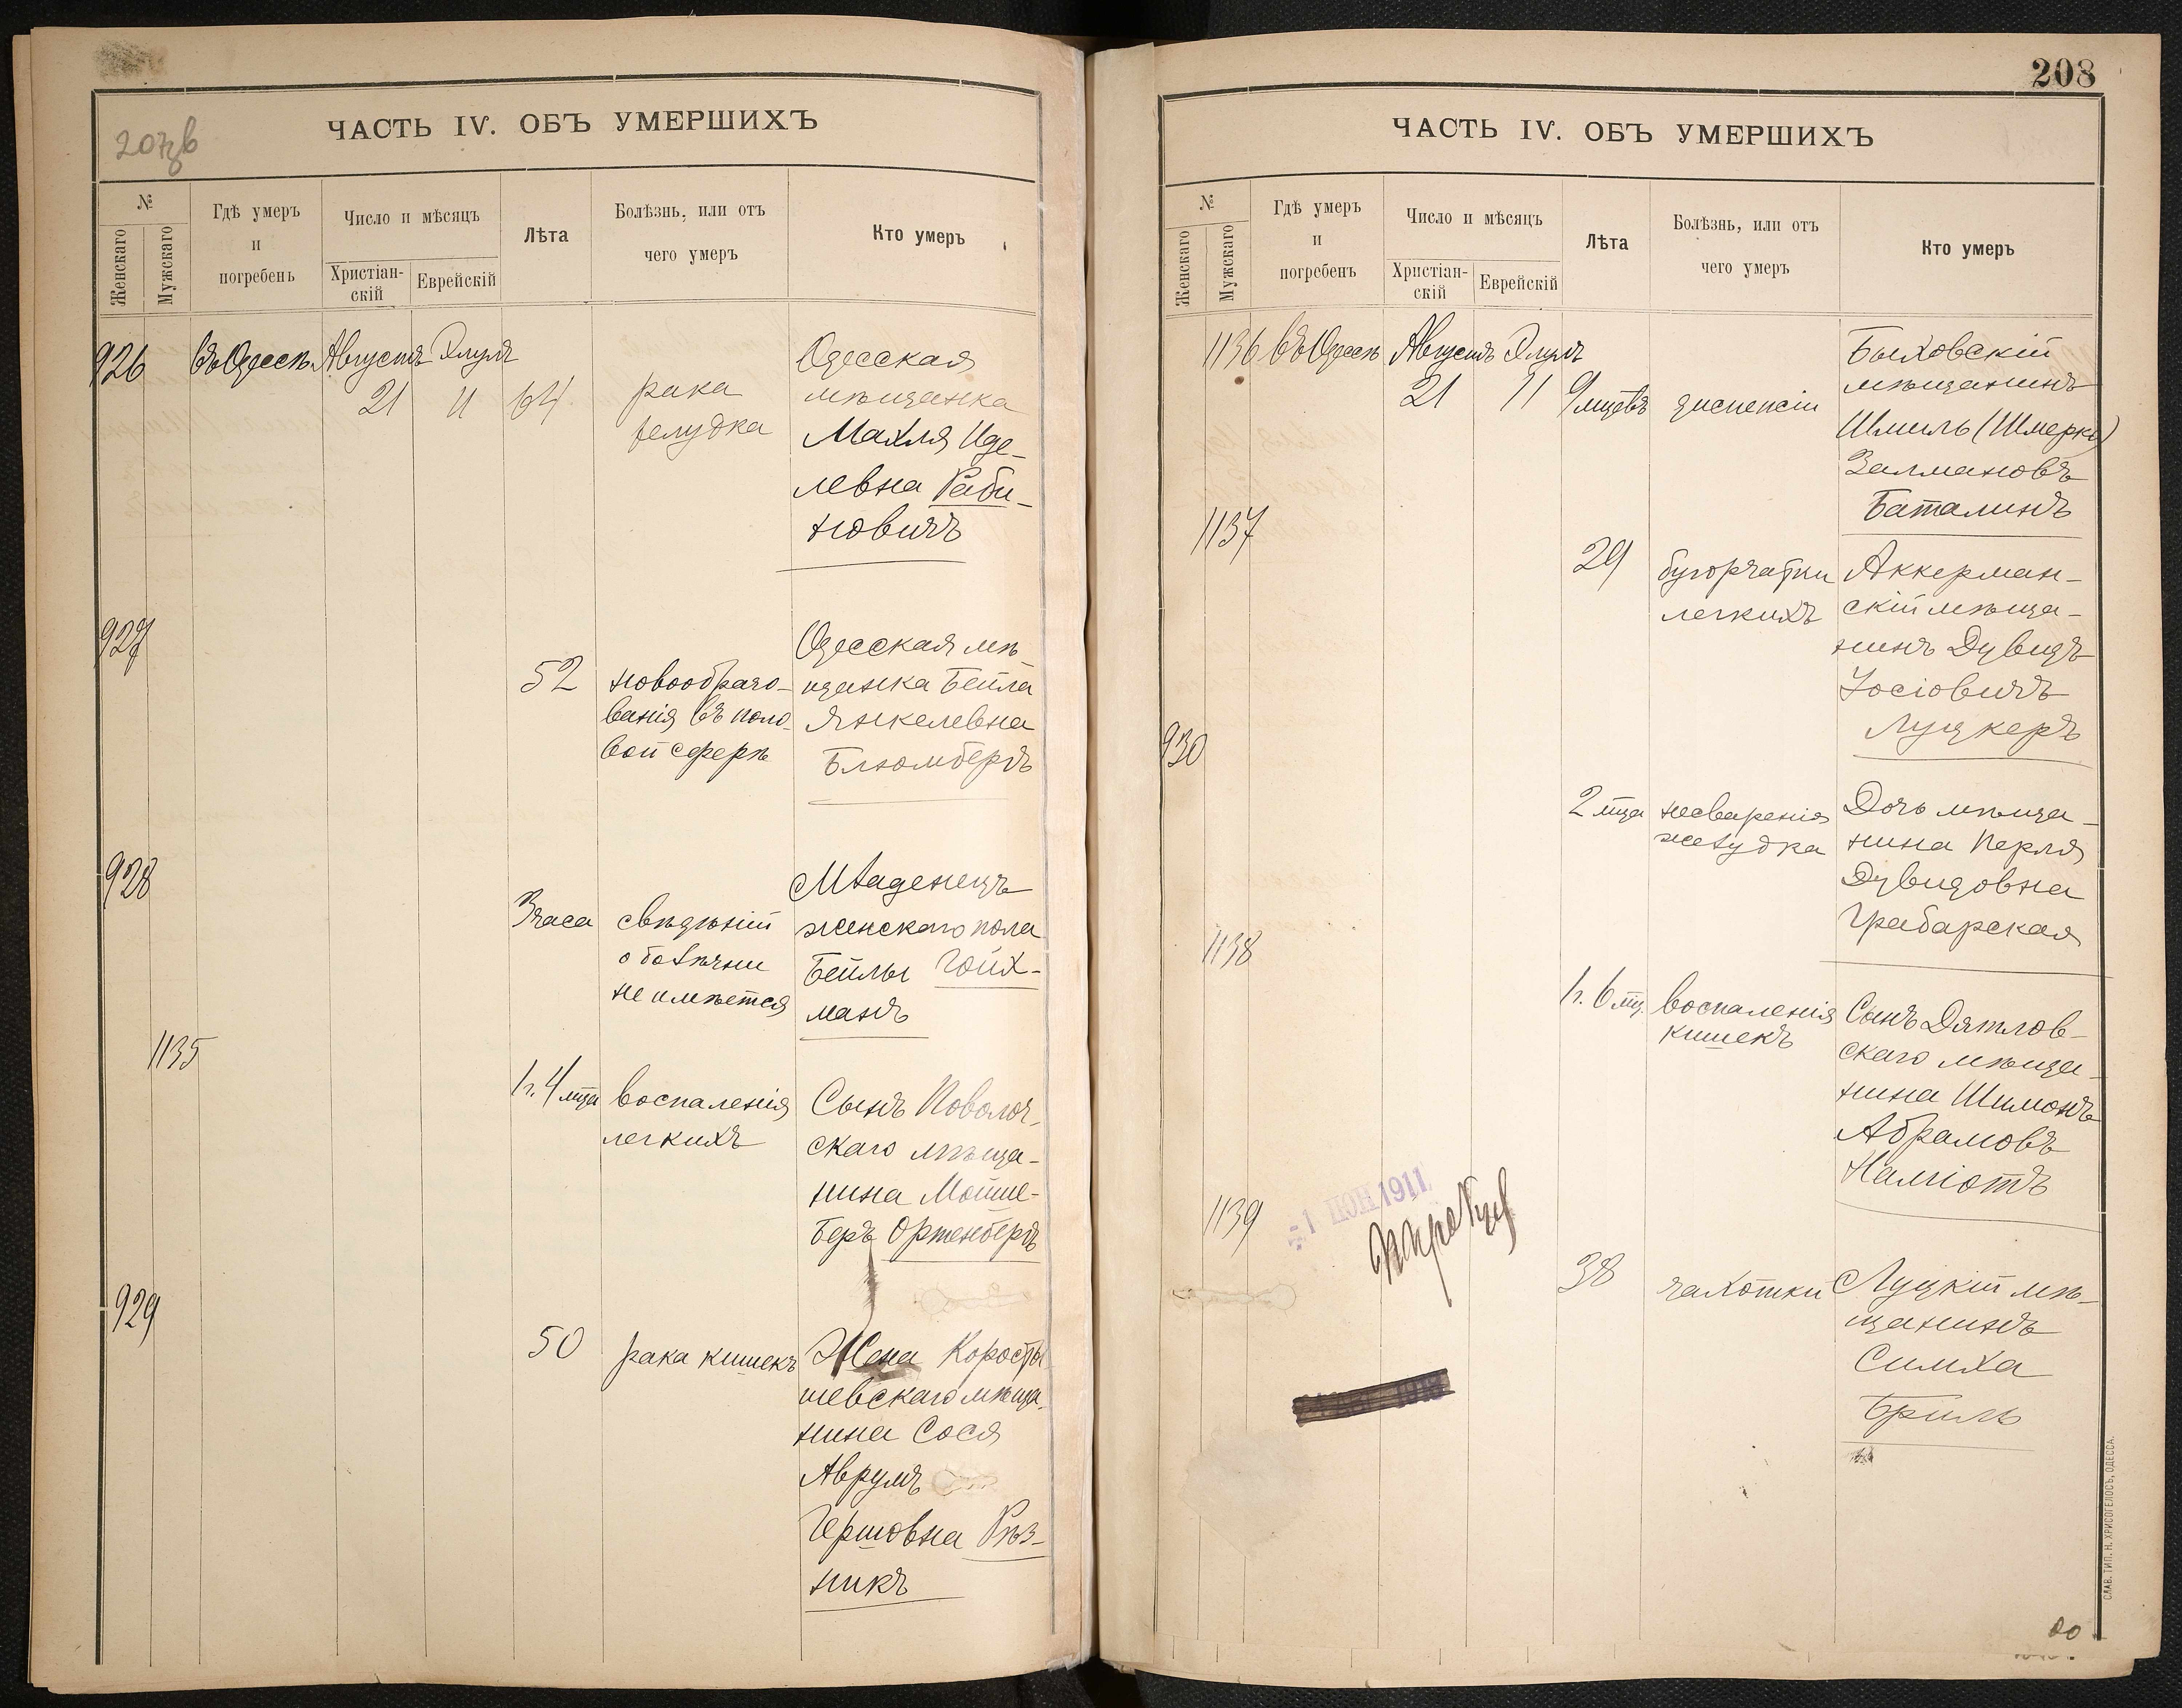 207зв
ЧАСТЬ IV. ОБЪ УМЕРШИХЪ
№
Женскаго
Мужскаго
Гдѣ умеръ
и
погребенъ
Число и мѣсяцъ
Христіан-
скій
Еврейскій
Лѣта
Болѣзнь, или отъ
чего умеръ
Кто умеръ
926 въ Одессѣ Августъ Элулъ
21 11 64
рака
желудка
Одесская
мѣщанка
Махля Иде-
левна Раби-
новичъ
927
52
новообразо-
ванія въ поло-
вой сферѣ
Одесская мѣ-
щанка Бейла
Янкелевна
Блюмбергъ
928
3 часа
свѣдѣній
о болѣзни
не имѣется
Младенецъ
женскаго пола
Бейлы Гойх-
манъ
1135
1 г. 4 мца
воспаленія
легкихъ
Сынъ Поволоч-
скаго мѣща-
нина Мойше-
Беръ Ортенбергъ
929
50
рака кишекъ
Жена Коросты-
шевскаго мѣща-
нина Сося
Аврумъ
Гершовна Рѣз-
никъ
208
ЧАСТЬ IV. ОБЪ УМЕРШИХЪ
№
Женскаго
Мужскаго
Гдѣ умеръ
и
погребенъ
Число и мѣсяцъ
Христіан-
скій
Еврейскій
Лѣта
Болѣзнь, или отъ
чего умеръ
Кто умеръ
1136 въ Одессѣ Августъ Элулъ
21 11 9 мцевъ
диспепсіи
Быховскій
мѣщанинъ
Шмиль (Шмерко)
Залмановъ
Баталинъ
1137
29
бугорчатки
легкихъ
Аккерман-
скій мѣща-
нинъ Дувидъ
Іосіовичъ
Луцкеръ
930
2 мца
несваренія
желудка
Дочь мѣща-
нина Перля
Дувидовна
Грабарская
1138
1 г. 6 мц.
воспаленія
кишекъ
Сынъ Дятлов-
скаго мѣща-
нина Шимонъ
Абрамовъ
Налиотъ
1139
-1 ІЮН 1911
38
чахотки
Луцкій мѣ-
щанинъ
Симха
Бриль
СЛАВ. ТИП. Н. ХРИСОГЕЛОСЪ, ОДЕССА.